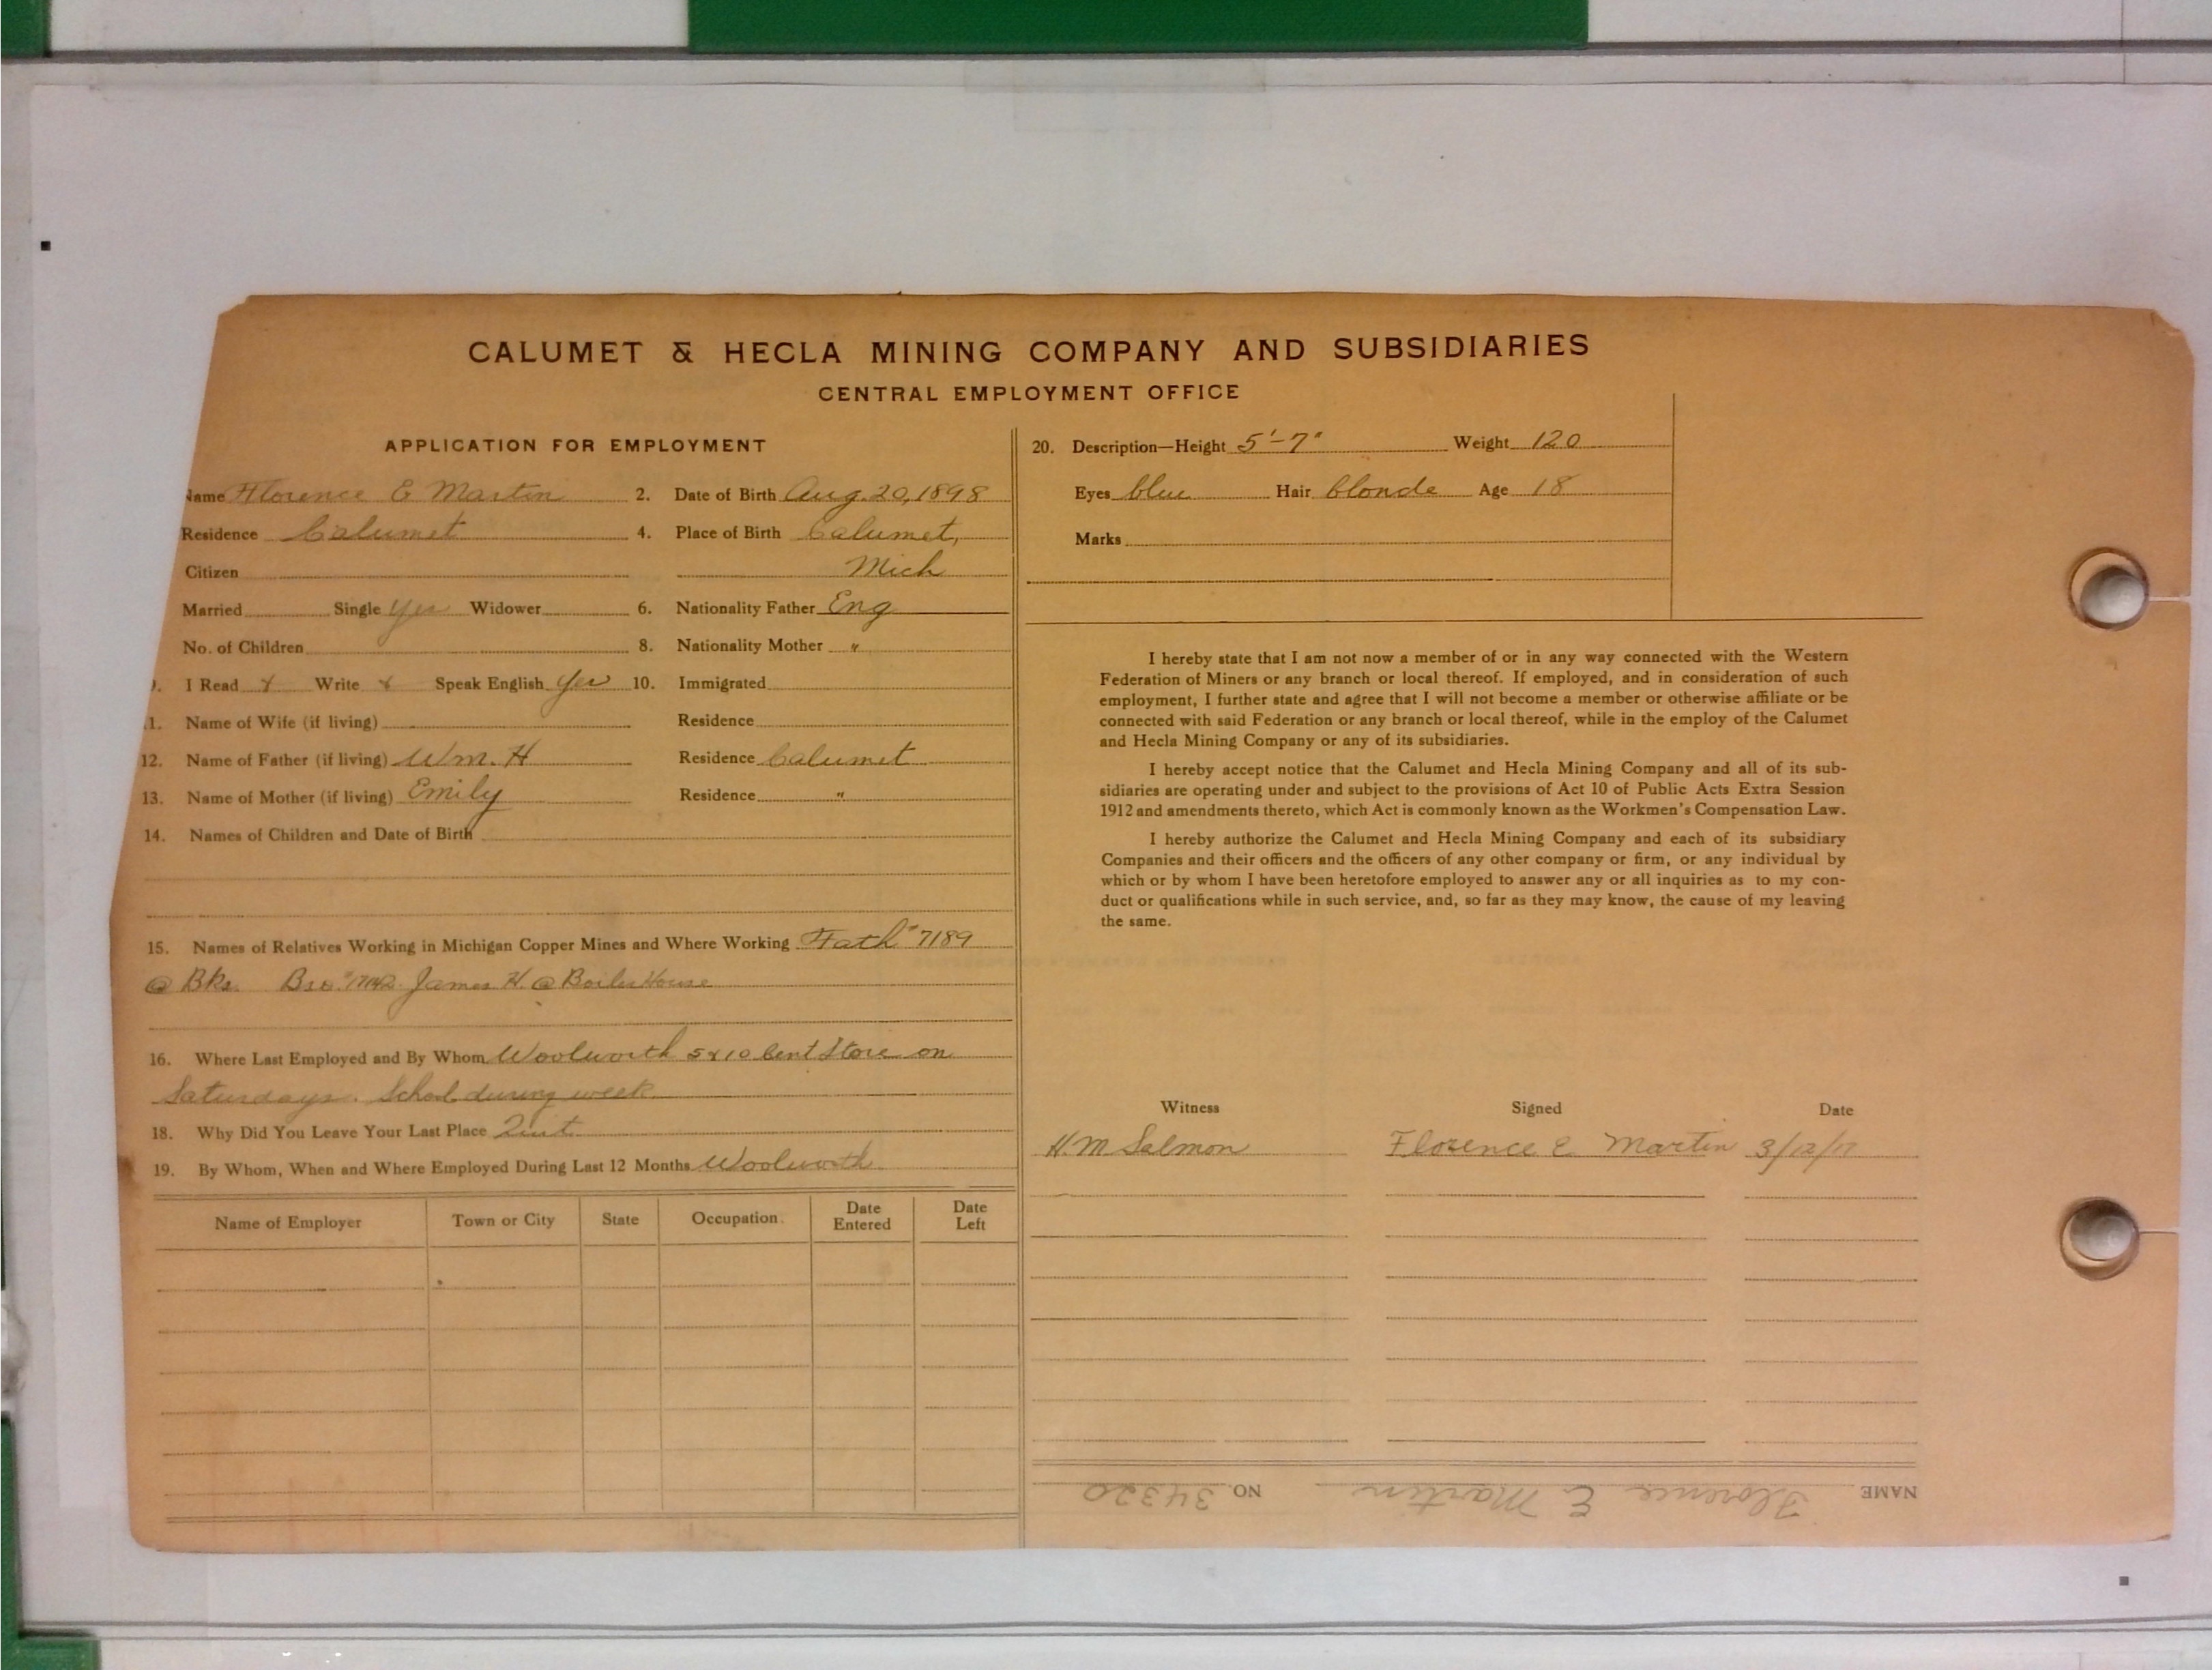 CALUMET & HECLA MINING COMPANY AND SUBSIDIARIES
CENTRAL EMPLOYMENT OFFICE
APPLICATION FOR EMPLOYMENT
Name Florence E Martin 2. Date of Birth Aug. 20, 1898
Residence Calumet 4. Place of Birth Calumet,
Citizen Mich
Married Single Yes Widower 6. Nationality Father Eng
No. of Children 8. Nationality Mother "
9. I Read Write Speak English Yes 10. Immigrated
11. Name of Wife (if living) Residence
12. Name of Father (if living) Wm. H Residence Calumet
13. Name of Mother (if living) Emily Residence "
14. Names of Children and Date of Birth
15. Names of Relatives Working in Michigan Copper Mines and Where Working Fath # 7189
@ Bks. Bro. James H. @ Boiler House
16. Where Last Employed and By Whom Woolworth 5 & 10 Cent Store on
Saturdays. School during week
18. Why Did You Leave Your Last Place Quit
19. By Whom, When and Where Employed During Last 12 Months Woolworth
Name of Employer Town or City State Occupation Date Entered Date Left
20. Description—Height 5'-7" Weight 120
Eyes blue Hair blonde Age 18
Marks
I hereby state that I am not now a member of or in any way connected with the Western
Federation of Miners or any branch or local thereof. If employed, and in consideration of such
employment, I further state and agree that I will not become a member or otherwise affiliate or be
connected with said Federation or any branch or local thereof, while in the employ of the Calumet
and Hecla Mining Company or any of its subsidiaries.
I hereby accept notice that the Calumet and Hecla Mining Company and all of its sub-
sidiaries are operating under and subject to the provisions of Act 10 of Public Acts Extra Session
1912 and amendments thereto, which Act is commonly known as the Workmen's Compensation Law.
I hereby authorize the Calumet and Hecla Mining Company and each of its subsidiary
Companies and their officers and the officers of any other company or firm, or any individual by
which or by whom I have been heretofore employed to answer any or all inquiries as to my con-
duct or qualifications while in such service, and, so far as they may know, the cause of my leaving
the same.
Witness Signed Date
H. M Salmon Florence E. Martin 3/12/17
NAME Florence E. Martin NO. 34320